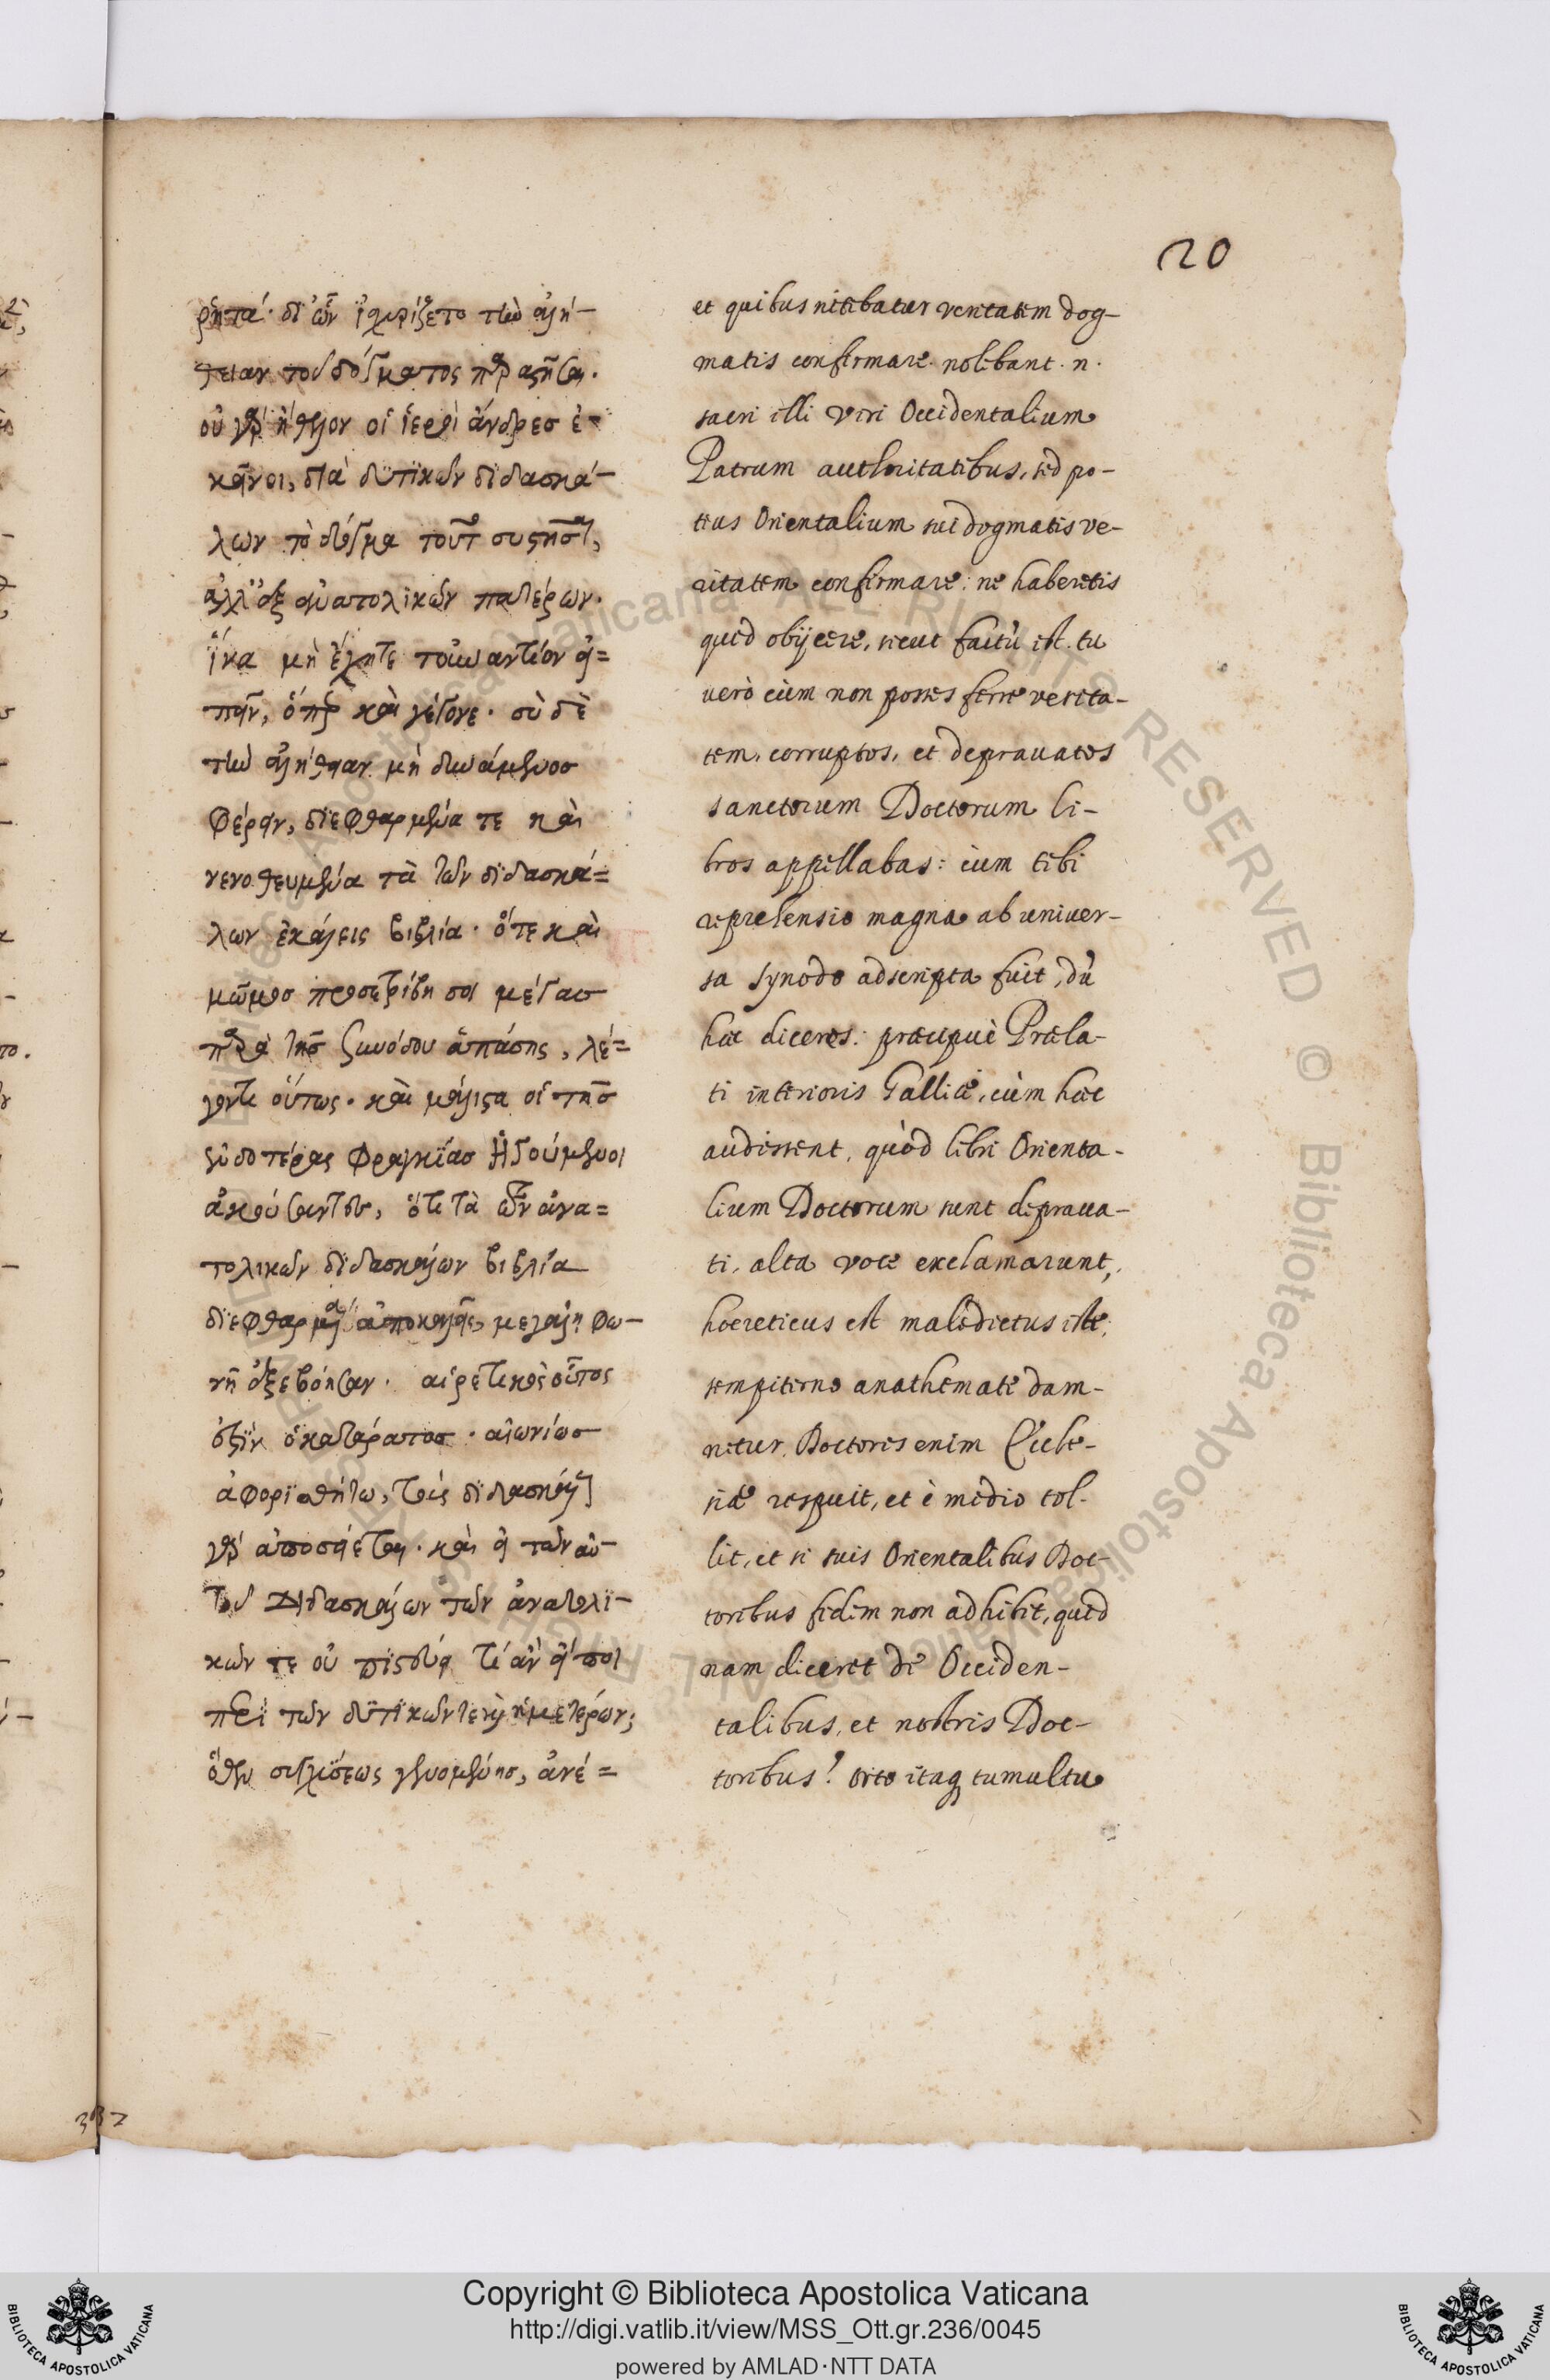 20
ρητά· δι' ὧν ἰσχυρίζετο τὴν ἀλή-
θειαν τοῦ δόγματος παραστῆσαι.
οὐ γὰρ ἤθελον οἱ ἱεροὶ ἄνδρες ἐ-
κεῖνοι, διὰ δυτικῶν διδασκά-
λων τὸ δόγμα τοῦτο συστῆσαι,
ἀλλ' ἐξ ἀνατολικῶν πατέρων.
ἵνα μὴ ἔχητε τοὐναντίον εἰ=
πεῖν, ὅπερ καὶ γέγονε. σὺ δὲ
τὴν ἀλήθειαν μὴ δυνάμενος
φέρειν, διεφθαρμένα τε καὶ
νενοθευμένα τὰ τῶν διδασκά=
λων ἐκάλεις βιβλία. ὅτε καὶ
μῶμος προσετρίβη σοι μέγας
παρὰ τῆς συνόδου ἁπάσης, λέ=
γοντι οὕτως. καὶ μάλιστα οἱ τῆς
ἐνδοτέρας Φραγκίας ἡγούμενοι
ἀκούσαντες, ὅτι τὰ τῶν ἀνα=
τολικῶν διδασκάλων βιβλία
διεφθαρμένα ἀποκαλεῖς, μεγάλη φω-
νῆ ἐξεβόησαν. αἱρετικὸς οὗτος
ἐστὶν ὁ κατάρατος. αἰωνίως
ἀφορισθήτω, τοὺς διδασκάλους
γὰρ ἀποσείεται. καὶ εἰ τῶν αὐ-
τοῦ διδασκάλων τῶν ἀνατολι-
κῶν τε οὐ πιστεύει τί ἂν εἴποι
περὶ τῶν δυτικῶν τε καὶ ἡμετέρων;
ὅθεν συγχύσεως γενομένης, ἀνέ=
et quibus nitebatur veritatem dog-
matis confirmare. nolebant. n.
sacri illi viri Occidentalium
Patrum authoritatibus, sed po-
tius Orientalium sui dogmatis ve-
ritatem confirmare: ne haberetis
quid obijcere, sicut factũ est. tu
uerò cùm non posses ferre verita-
tem, corruptos, et deprauatos
sanctorum Doctorum li-
bros appellabas: cum tibi
reprehensio magna ab univer-
sa synodo adscripta fuit, dũ
hæc diceres: præcipuè Præla-
ti interioris Galliæ, cùm hæc
audissent, quòd libri Orienta-
lium Doctorum sunt deprava-
ti, alta voce exclamarunt,
hœreticus est maledictus iste;
sempiterno anathemate dam-
netur. Doctores enim Eccle-
siæ respuit, et è medio tol-
lit, et si suis Orientalibus Doc-
toribus fidem non adhibet, quid
nam diceret de Occiden-
talibus, et nostris Doc-
toribus? Orto itaq tumultu
Copyright © Biblioteca Apostolica Vaticana
http://digi.vatlib.it/view/MSS_Ott.gr.236/0045
powered by AMLAD·NTT DATA